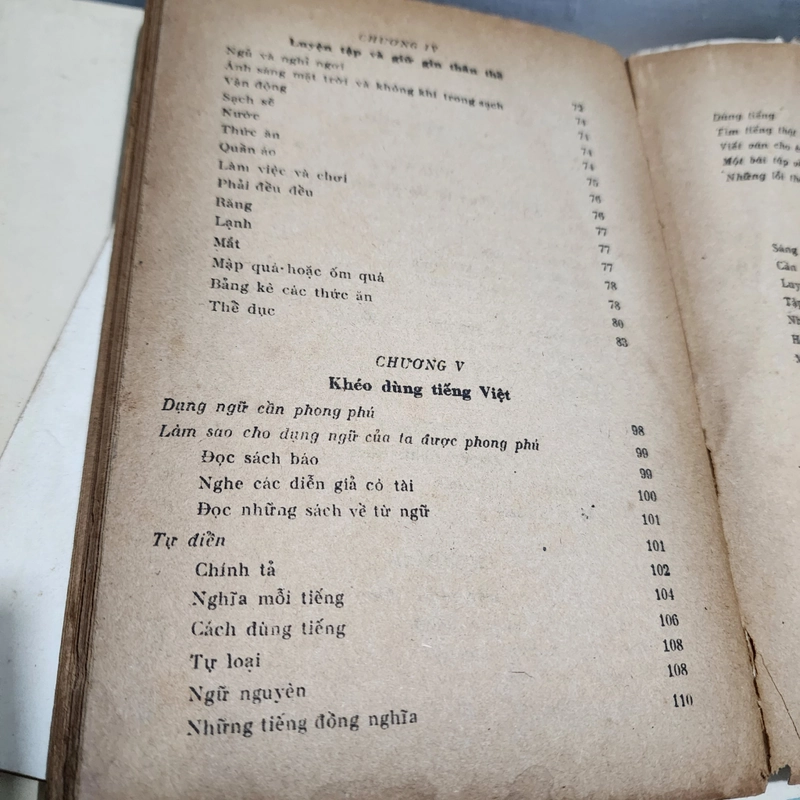 CHƯƠNG IV
Luyện tập và giữ gìn thân thể
Ngủ và nghỉ ngơi
Ánh sáng mặt trời và không khí trong sạch
Vận động 72
Sạch sẽ 74
Nước 74
Thức ăn 74
Quần áo 74
Làm việc và chơi 75
Phải đều đều 76
Răng 76
Lạnh 77
Mắt 77
Mập quá hoặc ốm quá 77
Bảng kê các thức ăn 78
Thể dục 78
80
83
CHƯƠNG V
Khéo dùng tiếng Việt
Dụng ngữ cần phong phú 98
Làm sao cho dụng ngữ của ta được phong phú 99
Đọc sách báo 99
Nghe các diễn giả có tài 100
Đọc những sách về từ ngữ 101
Tự điển 101
Chính tả 102
Nghĩa mỗi tiếng 104
Cách dùng tiếng 106
Tự loại 108
Ngữ nguyên 108
Những tiếng đồng nghĩa 110
Dùng tiếng
Tìm tiếng
Viết văn cho
Một bài tập
Những lỗi
Sáng
Cần
Luy
Tập
Nh